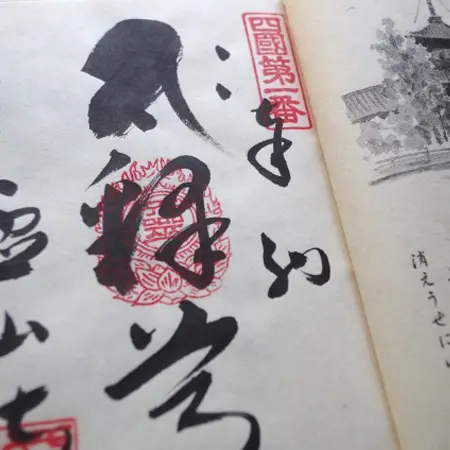 消えうせに
四國第一番
奉納
釋
霊山寺